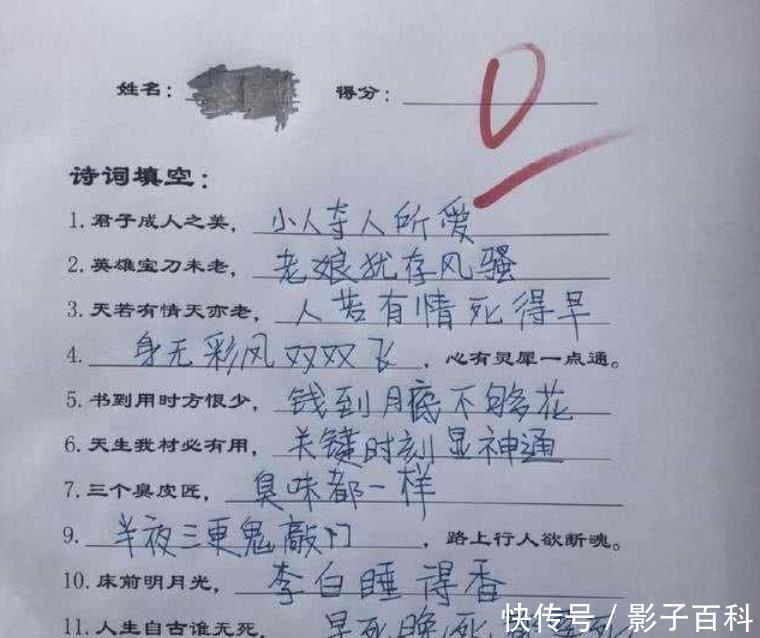 姓名： 得分： 0
诗词填空：
1. 君子成人之美，小人夺人所爱
2. 英雄宝刀未老，老娘犹存风骚
3. 天若有情天亦老，人若有情死得早
4. 身无彩风双双飞，心有灵犀一点通。
5. 书到用时方恨少，钱到月底不够花
6. 天生我材必有用，关键时刻显神通
7. 三个臭皮匠，臭味都一样
9. 半夜三更鬼敲门，路上行人欲断魂。
10. 床前明月光，李白睡得香
11. 人生自古谁无死，早死晚死
快传号 / 影子百科